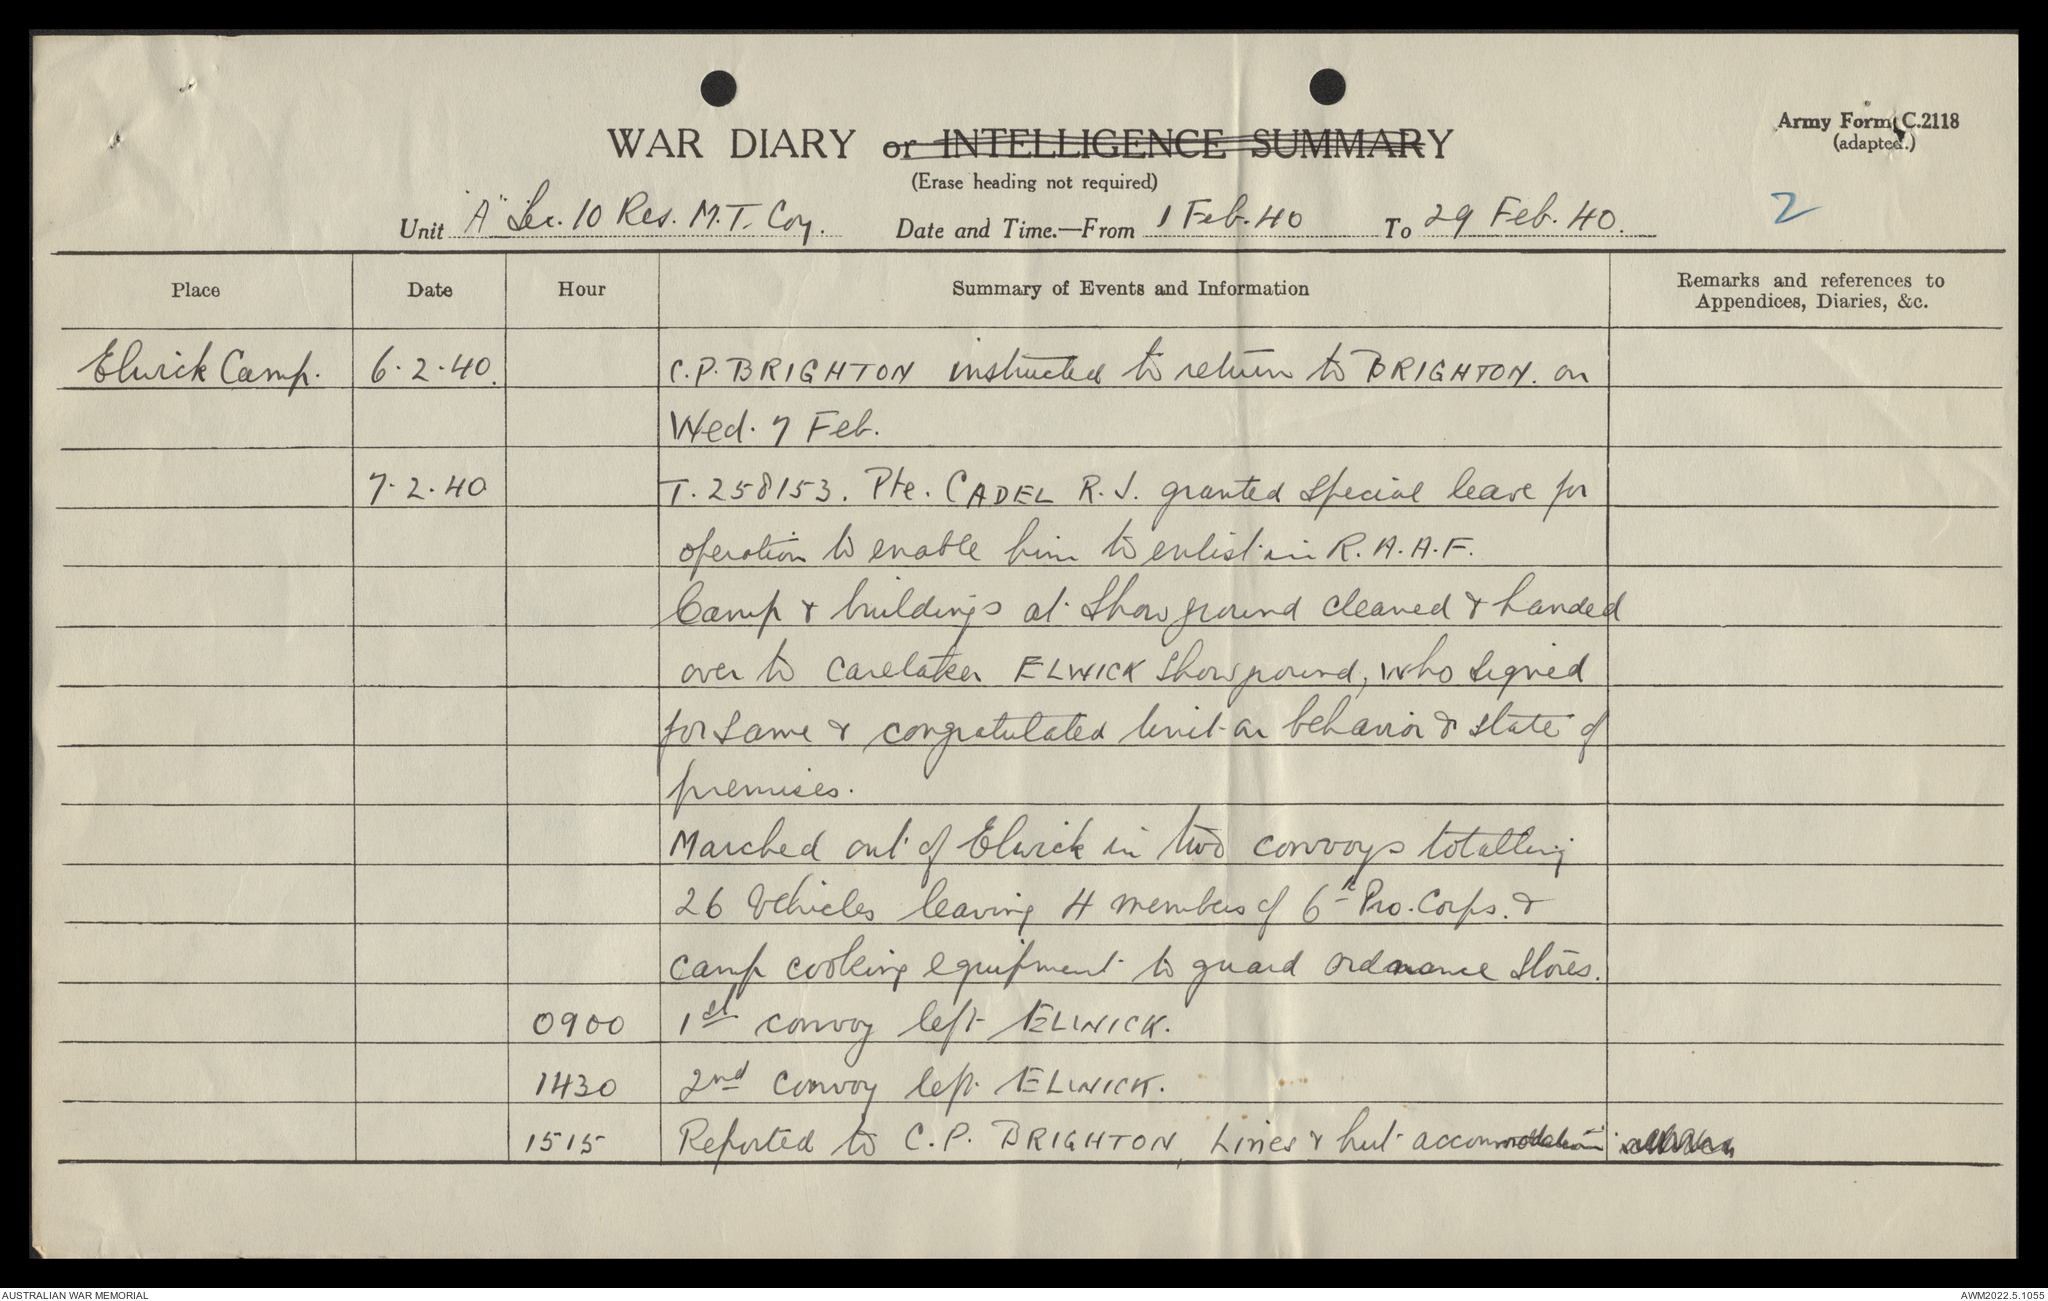 Army Form C.2118
(adapted.)
WAR DIARY or INTELLIGENCE SUMMARY
(Erase heading not required)
2
Unit "A" Sec. 10 Res. M.T. Coy. Date and Time.—From 1 Feb. 40 To 29 Feb. 40.
Place Date Hour Summary of Events and Information Remarks and references to
Appendices, Diaries, &c.
Elwick Camp. 6.2.40. C.P. BRIGHTON instructed to return to BRIGHTON. on
Wed. 7 Feb.
7.2.40 T.258153. Pte. CADEL R.J. granted special leave for
operation to enable him to enlist in R.A.A.F.
Camp & buildings at Showground cleaned & handed
over to caretaker ELWICK Showground, who signed
for same & congratulated unit on behavior & state of
premises.
Marched out of Elwick in two convoys totalling
26 vehicles leaving 4 members of 6th Pro. Corps. &
camp cooking equipment to guard ordnance stores.
0900 1st convoy left ELWICK.
1430 2nd convoy left ELWICK.
1515 Reported to C.P. BRIGHTON, Lines & hut accommodation
AUSTRALIAN WAR MEMORIAL AWM2022.5.1055